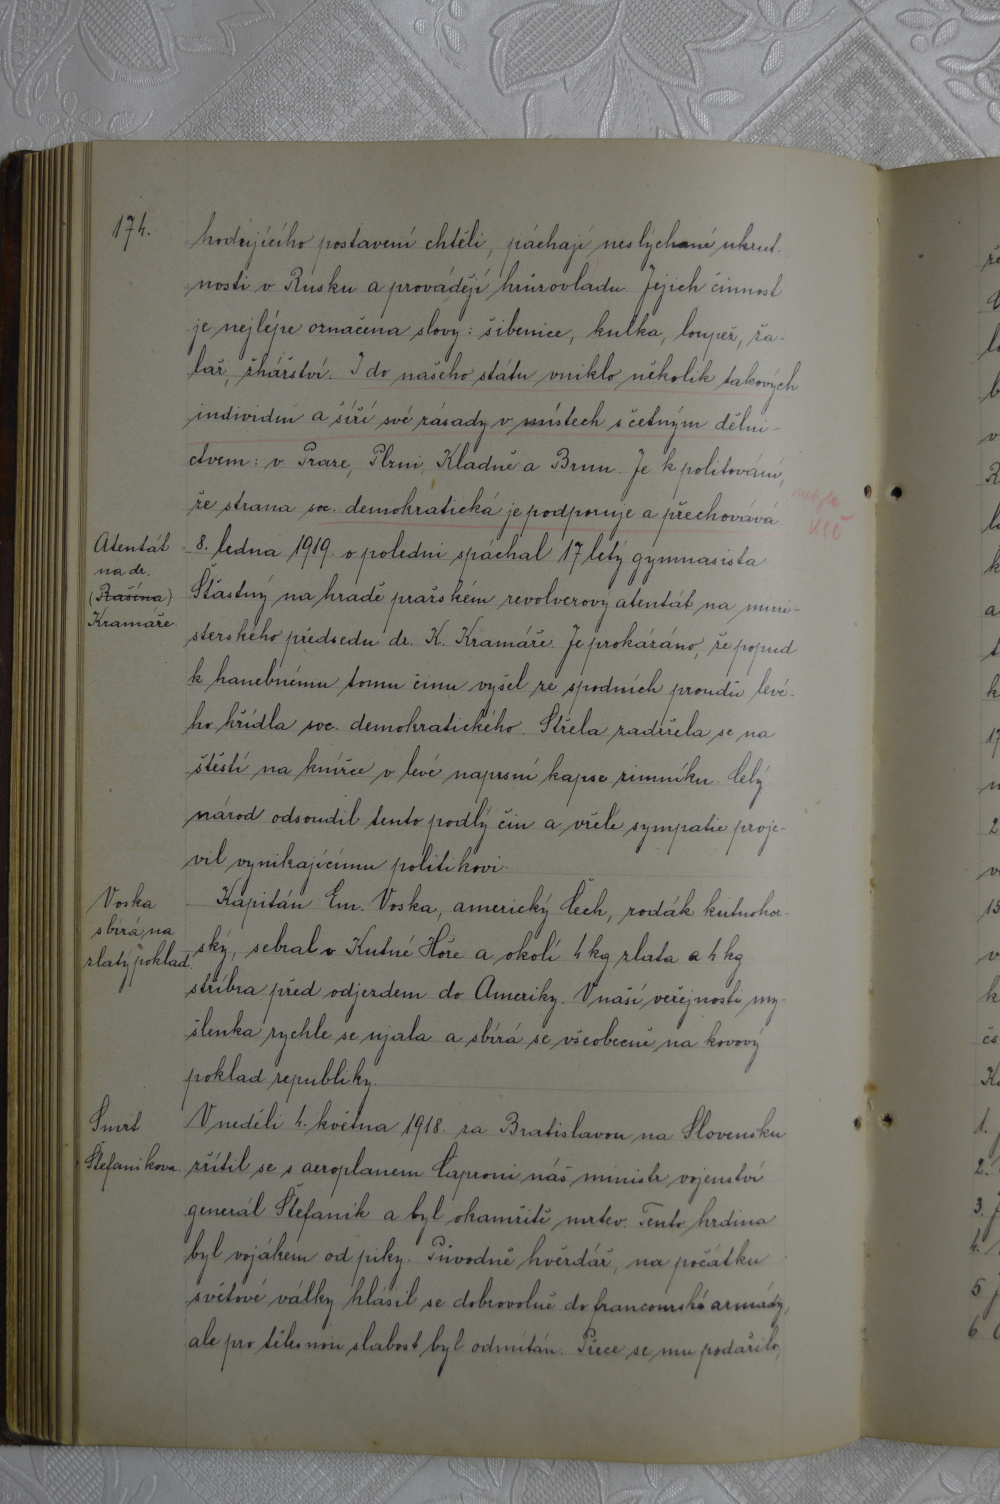 174.
hodujícího postavení chtěli, páchají neslýchané ukrut-
nosti v Rusku a provádějí hrůzovládu. Jejich činnost
je nejlépe označena slovy: šibenice, kulka, loupež, ža-
lář, žhářství. I do našeho státu vniklo několik takových
individuí a šíří své zásady v místech s četným dělni-
ctvem: v Praze, Plzni, Kladně a Brnu. Je k politování,
že strana soc. demokratická je podporuje a přechovává.
Atentát
na dr.
(Rašína)
Kramáře.
8. ledna 1919. o poledni spáchal 17 letý gymnasista
Šťastný na hradě pražském revolverový atentát na mini-
sterského předsedu dr. K. Kramáře. Je prokázáno, že popud
k hanebnému tomu činu vyšel ze spodních proudů levé-
ho křídla soc. demokratického. Střela zadržela se na
štěstí na knížce v levé náprsní kapse zimníku. Celý
národ odsoudil tento podlý čin a vřele sympatie proje-
vil vynikajícímu politikovi.
Voska
sbírá na
zlatý poklad.
Kapitán Em. Voska, americký Čech, rodák kutnohor-
ský, sebral v Kutné Hoře a okolí 4 kg zlata a 4 kg
stříbra před odjezdem do Ameriky. V naší veřejnosti my-
šlenka rychle se ujala a sbírá se všeobecně na kovový
poklad republiky.
Smrt
Štefanikova.
V neděli 4. května 1918. za Bratislavou na Slovensku
zřítil se s aeroplanem Caproni náš ministr vojenství
generál Štefanik a byl okamžitě mrtev. Tento hrdina
byl vojákem od piky. Původně hvězdář, na počátku
světové války hlásil se dobrovolně do francouzské armády,
ale pro tělesnou slabost byl odmítán. Přece se mu podařilo,